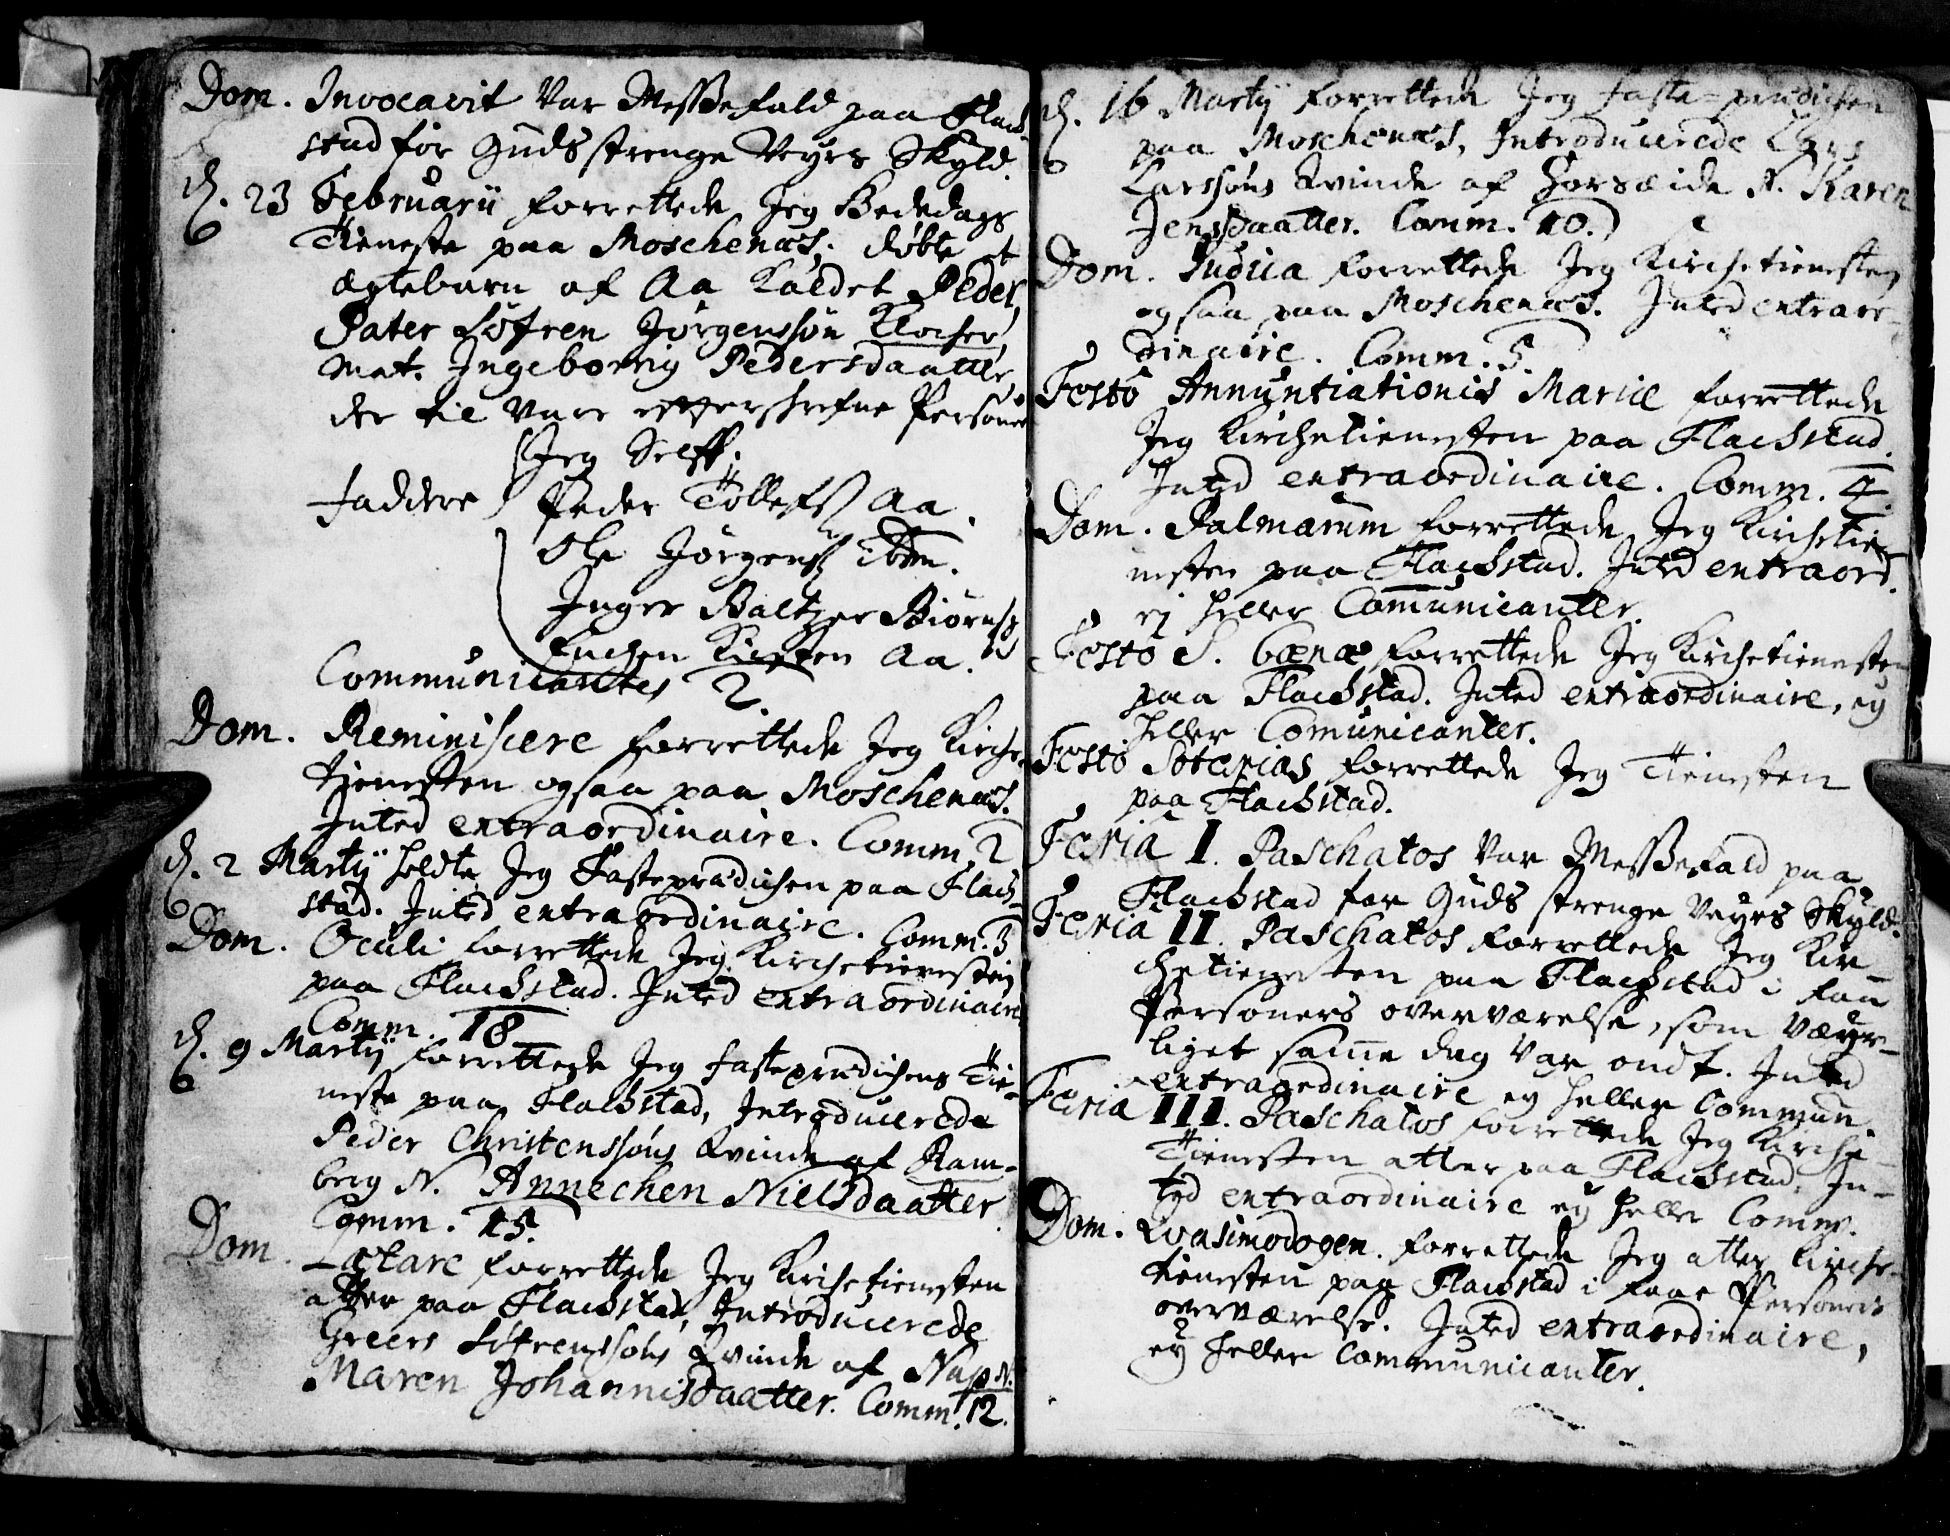 Dom. Invocavit Var Messefald paa Flach-
stad for Guds strenge Veyrs Skyld.
d. 23 Februarii forrettede Jeg Bededags
Tieneste paa Moschenæs, døbte et
ægtebarn af Aa kaldet Peder,
Pater Søfren Jørgenssøn Klocher,
Mat. Ingeborrig Pedersdaatter,
der til vare effterskrefne Personer
Jeg Selff.
faddere Peder Tollefs. Aa.
Ole Jørgens. ibm.
Inger Baltzer Biørns.
Enchen Kirsten Aa.
Communicantes 2.
Dom. Reminiscere forrettede Jeg Kirche-
tienesten ogsaa paa Moschenæs.
Inted extraordinaire. Comm. 2
d. 2 Martij holdte Jeg Fasteprædichen paa Flach-
stad. Inted extraordinaire. Comm. 3
Dom. Oculi forrettede Jeg Kirchetienesten
paa Flachstad. Inted extraordinaire
Comm. 18
d. 9 Martij forrettede Jeg fasteprædichens Tie-
neste paa Flachstad, Introducerede
Peder Christenssøns Qvinde af Ram-
berg N. Annechen Nielsdaatter
Comm. 15.
Dom. Lætare forrettede Jeg Kirchetienesten
atter paa Flachstad, Introducerede
Greers Søfrenssøns Qvinde af Nap N.
Maren Johannisdaatter. Comm. 12.
d. 16 Martij forrettede Jeg faste-prædichen
paa Moschenæs, Introducerede Lars
Larssøns Qvinde af N. Karen
Jensdaatter. Comm. 10.
Dom. Judica forrettede Jeg Kirchetienesten
ogsaa paa Moschenæs. Inted extraor-
dinaire. Comm. 5.
Festo Annuntiationis Mariæ forrettede
Jeg Kirchetienesten paa Flachstad.
Inted extraordinaire. Comm. 4
Dom. Palmarum forrettede Jeg Kirchetie-
nesten paa Flachstad. Inted extraord.
ej heller Comunicanter.
Festo S. Cænæ forrettede Jeg Kirchetienesten
paa Flachstad. Inted extraordinaire, ey
heller Comunicanter.
Festo Soterias forrettede Jeg Tienesten
paa Flachstad.
Feria I. Paschatos Var Messefald paa
Flachstad for Guds strenge Veyrs Skyld.
Feria II. Paschatos forrettede Jeg Kir-
chetienesten paa Flachstad i faa
Personers overværelse, som Væyr-
liget samme dag Var ondt. Inted
extraordinaire ey heller Commun.
Feria III. Paschatos forrettede Jeg Kirche-
Tienesten atter paa Flachstad. In-
ted extraordinaire ey heller Comm.
Dom. Qvasimodogen. forrettede Jeg atter Kirche-
tienesten paa Flachstad i faae Personers
overværelse. Inted extraordinaire,
ey heller Communicanter.